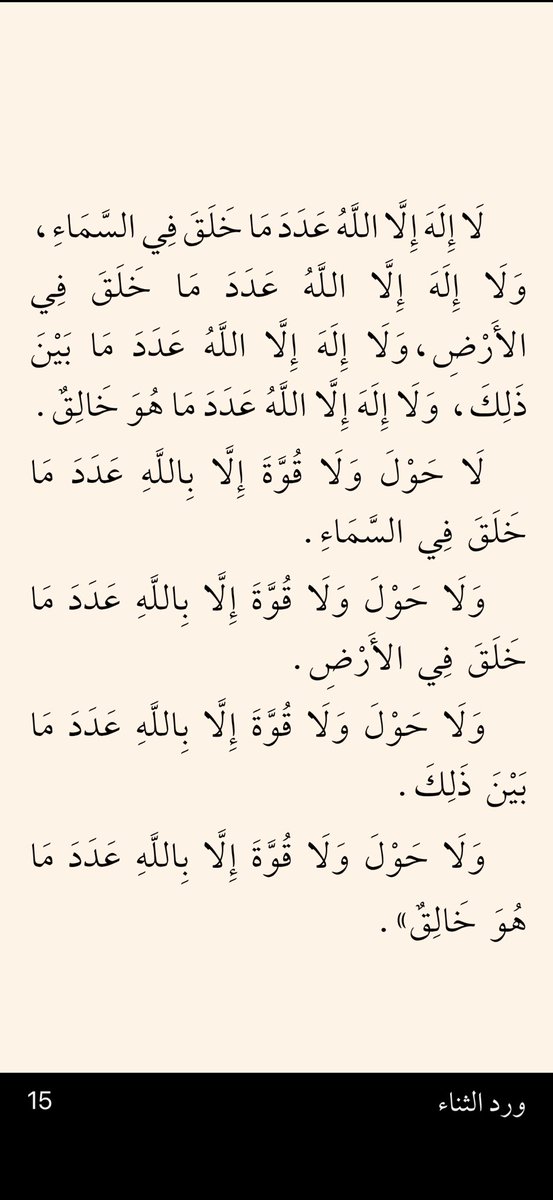 لَا إِلَهَ إِلَّا اللَّهُ عَدَدَ مَا خَلَقَ فِي السَّمَاءِ،
وَلَا إِلَهَ إِلَّا اللَّهُ عَدَدَ مَا خَلَقَ فِي
الأَرْضِ، وَلَا إِلَهَ إِلَّا اللَّهُ عَدَدَ مَا بَيْنَ
ذَلِكَ، وَلَا إِلَهَ إِلَّا اللَّهُ عَدَدَ مَا هُوَ خَالِقٌ.
لَا حَوْلَ وَلَا قُوَّةَ إِلَّا بِاللَّهِ عَدَدَ مَا
خَلَقَ فِي السَّمَاءِ.
وَلَا حَوْلَ وَلَا قُوَّةَ إِلَّا بِاللَّهِ عَدَدَ مَا
خَلَقَ فِي الأَرْضِ.
وَلَا حَوْلَ وَلَا قُوَّةَ إِلَّا بِاللَّهِ عَدَدَ مَا
بَيْنَ ذَلِكَ.
وَلَا حَوْلَ وَلَا قُوَّةَ إِلَّا بِاللَّهِ عَدَدَ مَا
هُوَ خَالِقٌ».
ورد الثناء 15